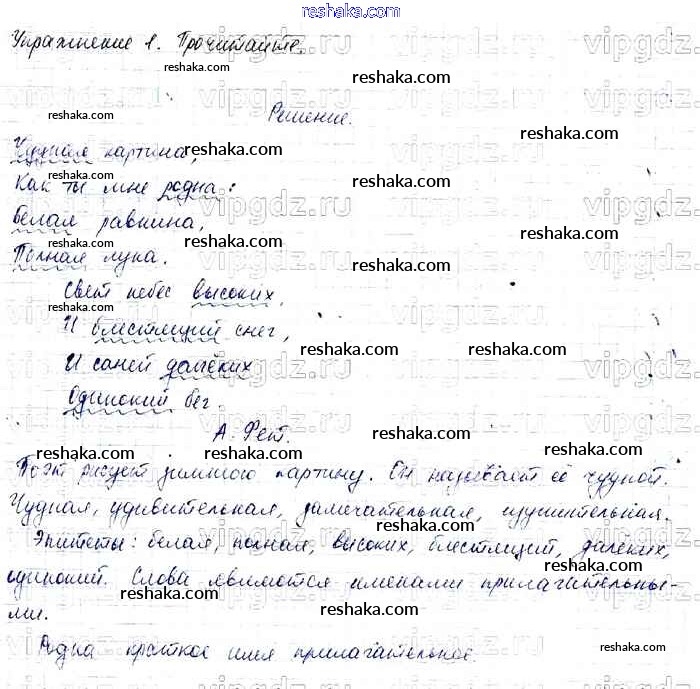 reshaka.com
Упражнение 1. Прочитайте.
Решение.
Чудная картина,
Как ты мне родна:
Белая равнина,
Полная луна.
Свет небес высоких,
И блестящий снег,
И саней далёких
Одинокий бег.
А. Фет.
Поэт рисует зимнюю картину. Он называет её чудной.
Чудная, удивительная, замечательная, изумительная.
Эпитеты: белая, полная, высоких, блестящий, далёких,
одинокий. Слова являются именами прилагательны-
ми.
Родна краткое имя прилагательное.